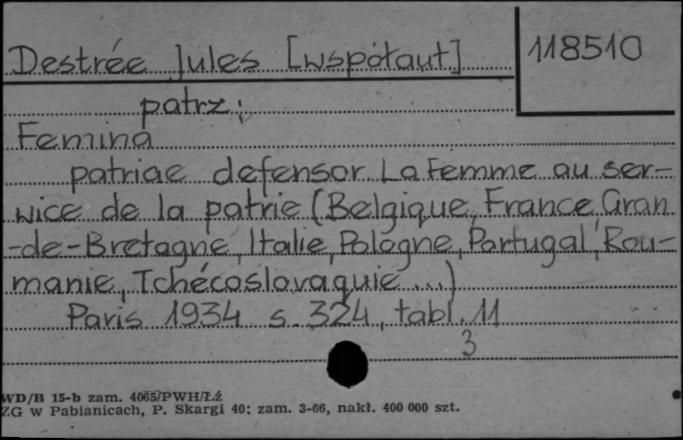 Destrée Jules [współaut.]
118510
patrz:
Femina
patriae defensor. La Femme au ser-
wice de la patrie (Belgique, France, Gran
-de-Bretagne, Italie, Pologne, Portugal, Rou-
manie, Tchécoslovaquie ...)
Paris 1934 s. 324, tabl. 11
3
WD/B 15-b zam. 4065/PWH/Łź
ZG w Pabianicach, P. Skargi 40; zam. 3-66, nakł. 400 000 szt.